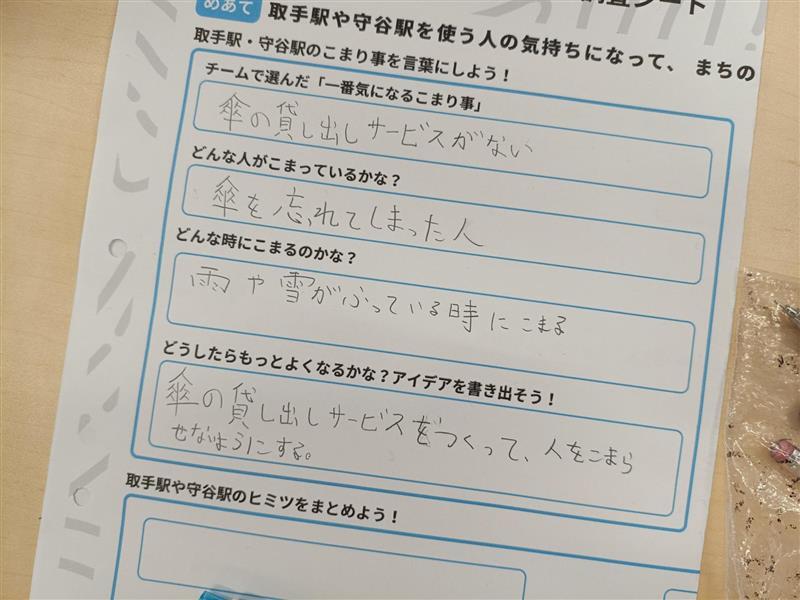 シート
めあて 取手駅や守谷駅を使う人の気持ちになって、まちの
取手駅・守谷駅のこまり事を言葉にしよう！
チームで選んだ「一番気になるこまり事」
傘の貸し出しサービスがない
どんな人がこまっているかな？
傘を忘れてしまった人
どんな時にこまるのかな？
雨や雪がふっている時にこまる
どうしたらもっとよくなるかな？アイデアを書き出そう！
傘の貸し出しサービスをつくって、人をこまら
せないようにする。
取手駅や守谷駅のヒミツをまとめよう！